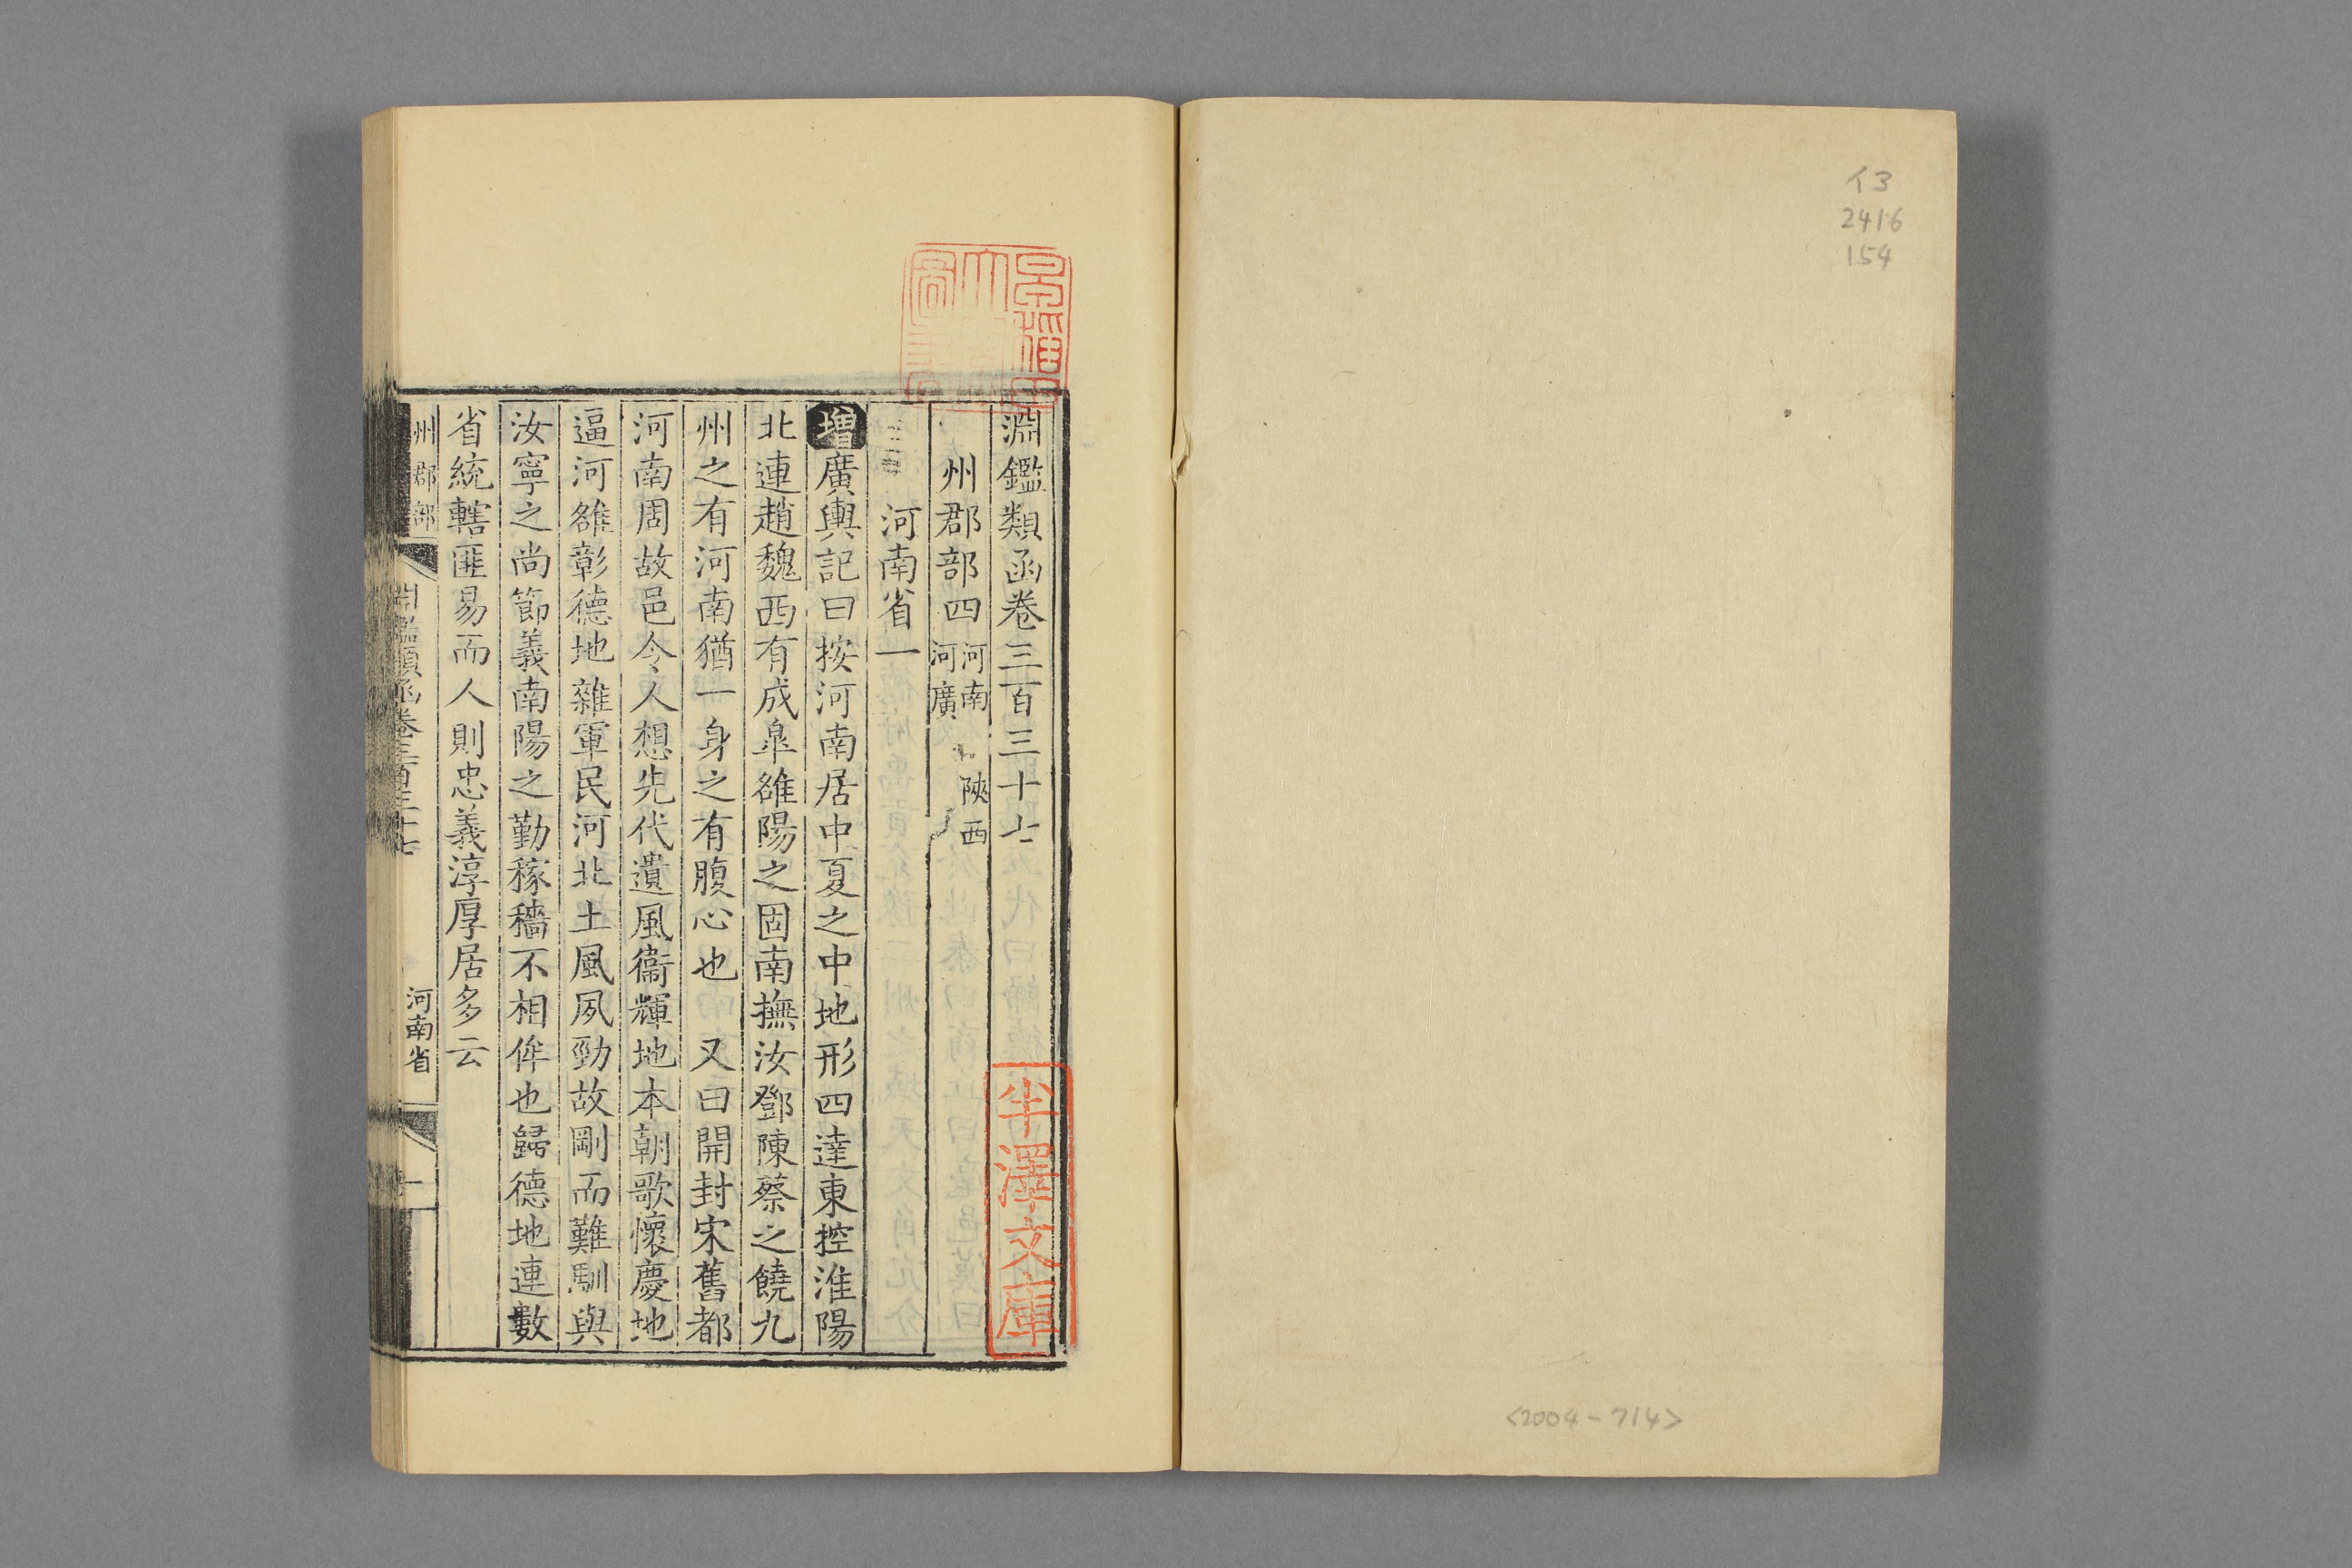 イ3
2416
154
<2004-714>
淵鑑類函卷三百三十七
州郡部四 河南 陝西 河廣
河南省一
增廣輿記曰按河南居中夏之中地形四達東控淮陽
北連趙魏西有成臯雒陽之固南撫汝鄧陳蔡之饒九
州之有河南猶一身之有腹心也 又曰開封宋舊都
河南周故邑令人想先代遺風衞輝地本朝歌懷慶地
逼河雒彰德地雜軍民河北土風夙勁故剛而難馴與
汝寧之尚節義南陽之勤稼穡不相侔也歸德地連數
省統轄匪易而人則忠義淳厚居多云
州郡部 淵鑑類函卷三百三十七 河南省 一
半澤文庫